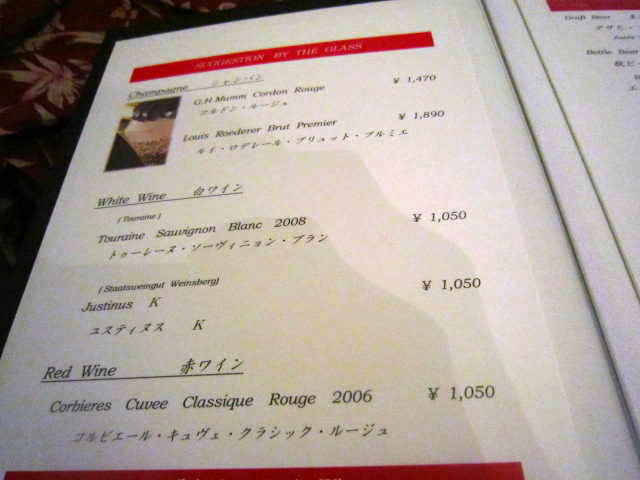 SUGGESTION BY THE GLASS
Champagne シャンパン
G.H.Mumm Cordon Rouge ¥ 1,470
コルドン・ルージュ
Louis Roederer Brut Premier ¥ 1,890
ルイ・ロデレール・ブリュット・プルミエ
White Wine 白ワイン
(Touraine)
Touraine Sauvignon Blanc 2008 ¥ 1,050
トゥーレーヌ・ソーヴィニョン・ブラン
(Staatsweingut Weinsberg)
Justinus K ¥ 1,050
ユスティヌス K
Red Wine 赤ワイン
Corbieres Cuvee Classique Rouge 2006 ¥ 1,050
コルビエール・キュヴェ・クラシック・ルージュ
Draft Beer
アサヒ・
Bottle Beer